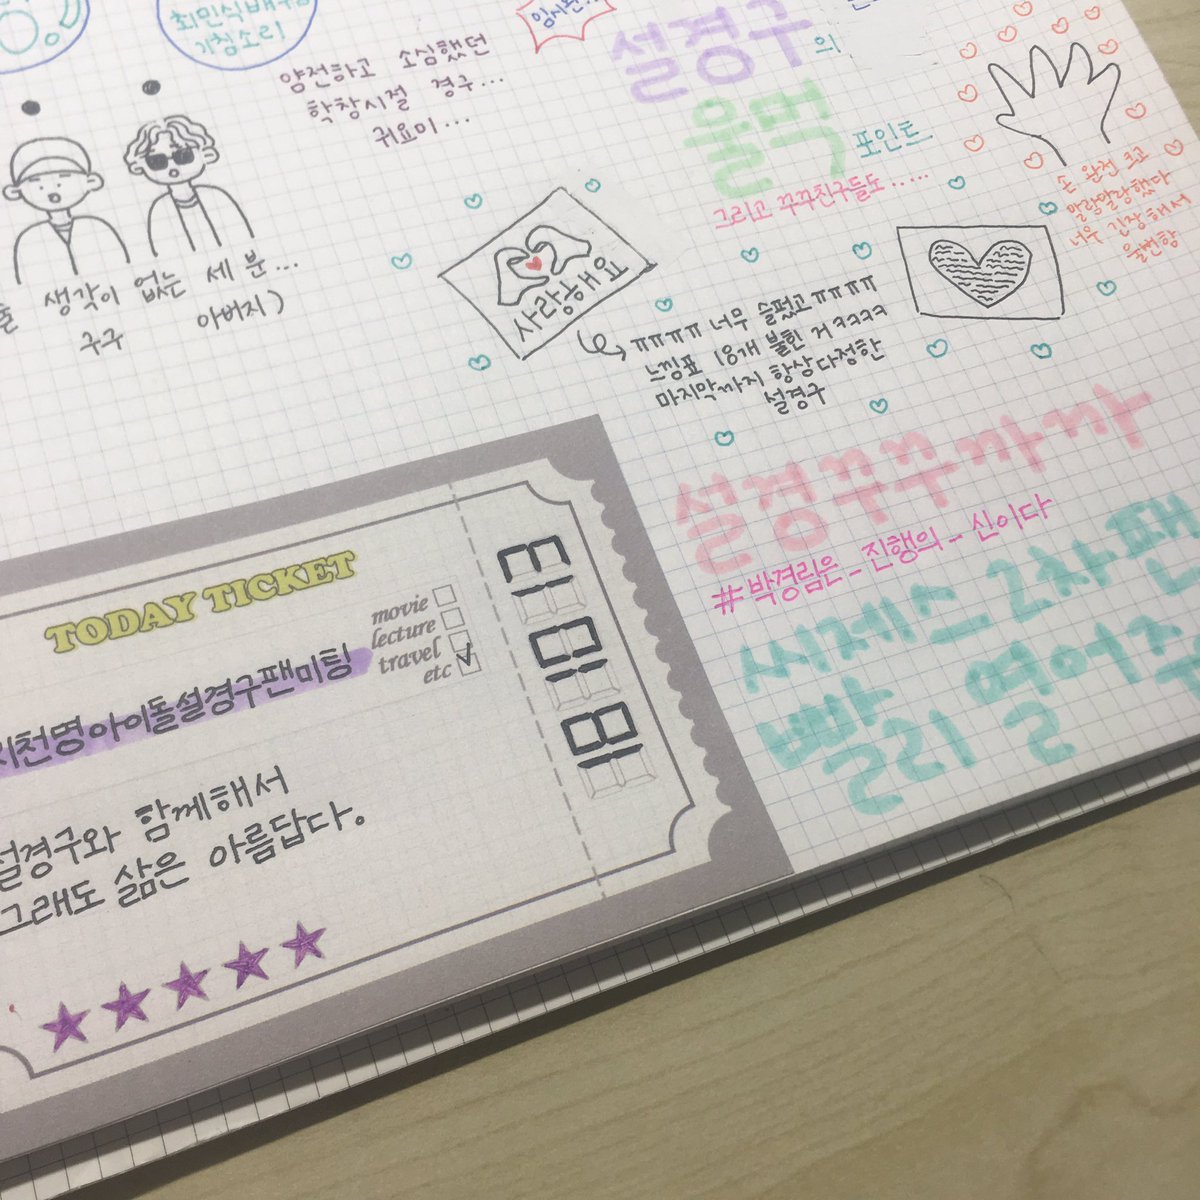 최민식배우님
기침소리
얌전하고 소심했던
학창시절 경구...
귀요미...
설경구의
울먹
포인트
그리고 꾸꾸친구들도.....
손 완전 크고
말랑말랑했다
너무 긴장해서
울뻔함
생각이 없는 세 분...
구구 아버지)
사랑해요
ㅠㅠㅠㅠ 너무 슬펐고ㅠㅠㅠㅠ
느낌표 18개 붙힌 거 ㅋㅋㅋㅋ
마지막까지 항상 다정한
설경구
설경꾸꾸까까
#박경림은_진행의_신이다
씨제스 2차팬
빨리 열어주
TODAY TICKET
movie
lecture
travel
etc
지천명아이돌설경구팬미팅
설경구와 함께해서
그래도 삶은 아름답다.